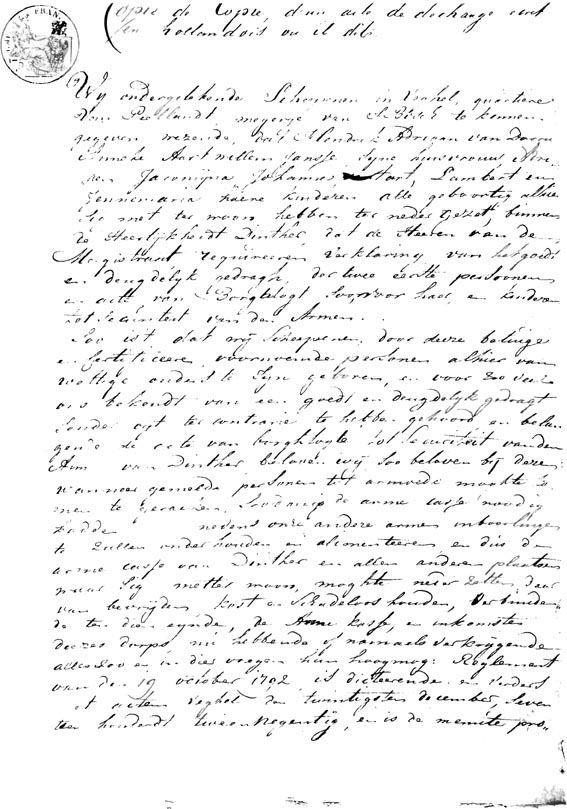 Copie de Copie, d'un acte de decharge ecrit
en hollandois ou il dit
Wij ondergetekende Schepenen in Veghel, quartiere
van Peellandt, meijerije van s'Bosch te kennen
gegeven wezende, dat Hendrik Adriaan van Doorn
Anneke Aart willem Jansse, syne huysvrouwe
Jacomijna Johannes Aart, Lambert en
Jennemaria haere kinderen alle geboortig alhier
Sig met ter woon hebben ter neder gezet, binnen
de Heerlykheidt Dinther, dat de Heeren van de
Magistraat requireeren verklaring van het goedt
en deugdelyk gedragh, der twee eerste persoonen
en acte van Borgtogt voor haer en kinderen
tot Securiteit van den Armen.
Soo ist dat wij Schepenen, door deeze betuige
en certificeeren voornoemde personen alhier van
wettige ouders te zyn geboren, en voor zoo veel
ons bekendt van een goedt en deugdelyk gedragt
sonder ojt ter contrarie te hebben gehoord en belan
gende de acte van borghtogte tot securiteit van den
Arm van Dinther beloven wij soo beloven bij deze
wanneer gemelde personen tot armoede moghte
men te geraaken, Sodanig de arme casse noodig
hadde nevens onze andere armen inboorlinge
te zullen onderhouden en alimenteeren en dus de
arme casse van Dinther en allen andere plaatsen
waar Sig metter woon, moghte neder zetten, daar
van bevrijden kost en Schadeloos houden, verbinden
de ten dien eynde, de Arme kasse, en inkomsten
deezes dorps nu hebbende of namaels verkrijgende
alles soo en in dier voegen hun hoogmog: Reglement
van den 19 october 1792 is dicteerende en verders
actum veghel den twintigsten december, seven
tien hondert tweennegentig, en is de menute pro-